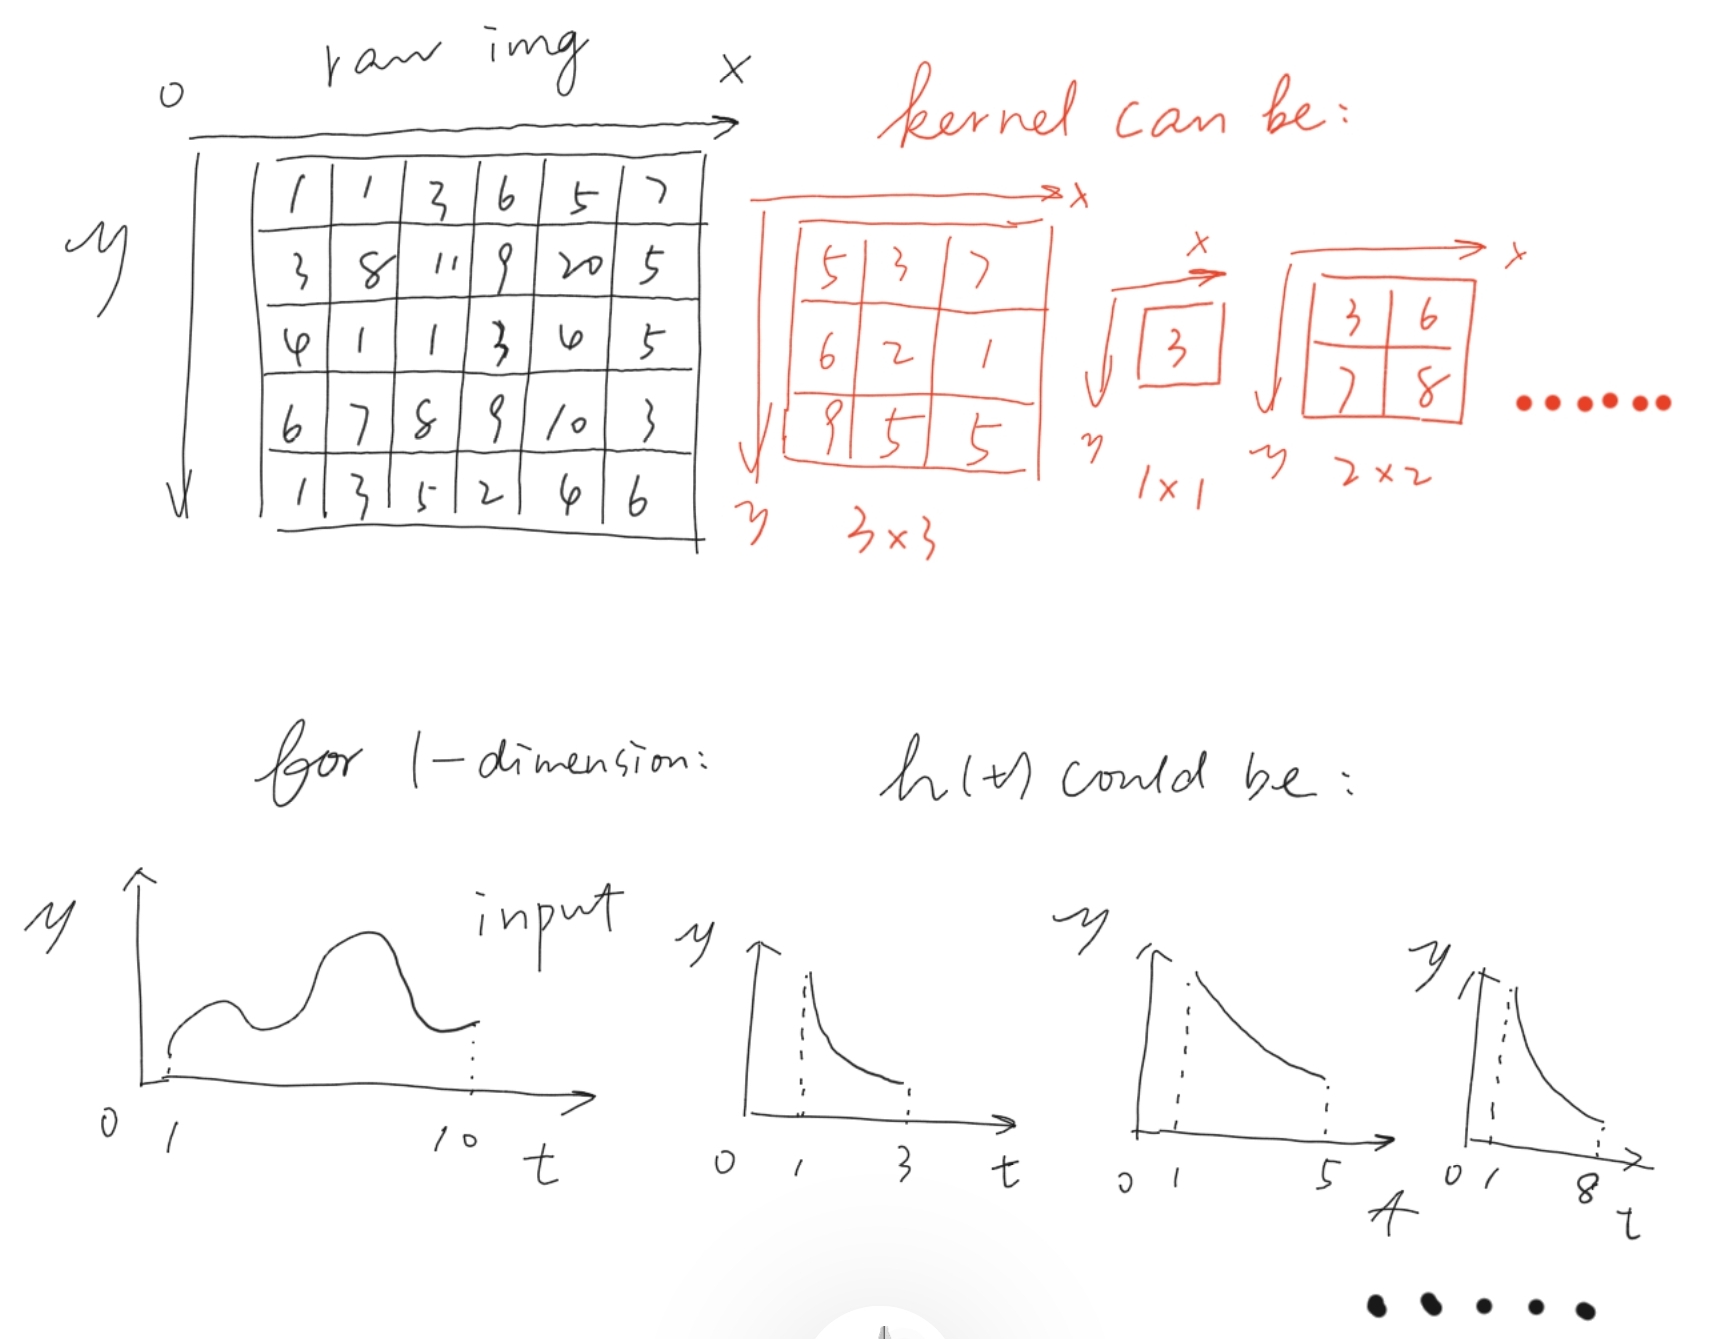 raw img
0 x
y
1 1 3 6 5 7
3 8 11 9 20 5
4 1 1 3 4 5
6 7 8 9 10 3
1 3 5 2 4 6
kernel can be:
x
5 3 7
6 2 1
9 5 5
y
3x3
x
3
y
1x1
x
3 6
7 8
y
2x2
......
for 1-dimension:
h(t) could be:
y
input
0 1 10 t
y
0 1 3 t
y
0 1 5 t
y
0 1 8 t
.....